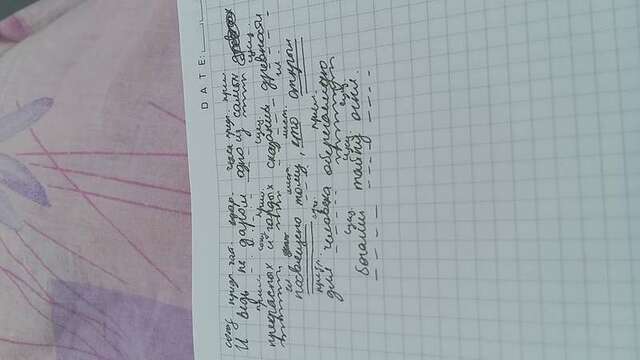 DATE:
союз предл. част. нар. числ. предл. прил.
И ведь не даром одно из самых
прил. союз прил. сущ. сущ.
прекрасных и гордых сказаний древности
гл. мест. мест. гл.
посвящено тому, что открыл
предл. сущ. прил.
для человека оберегаемую
сущ. сущ. сущ.
богами тайну огня.